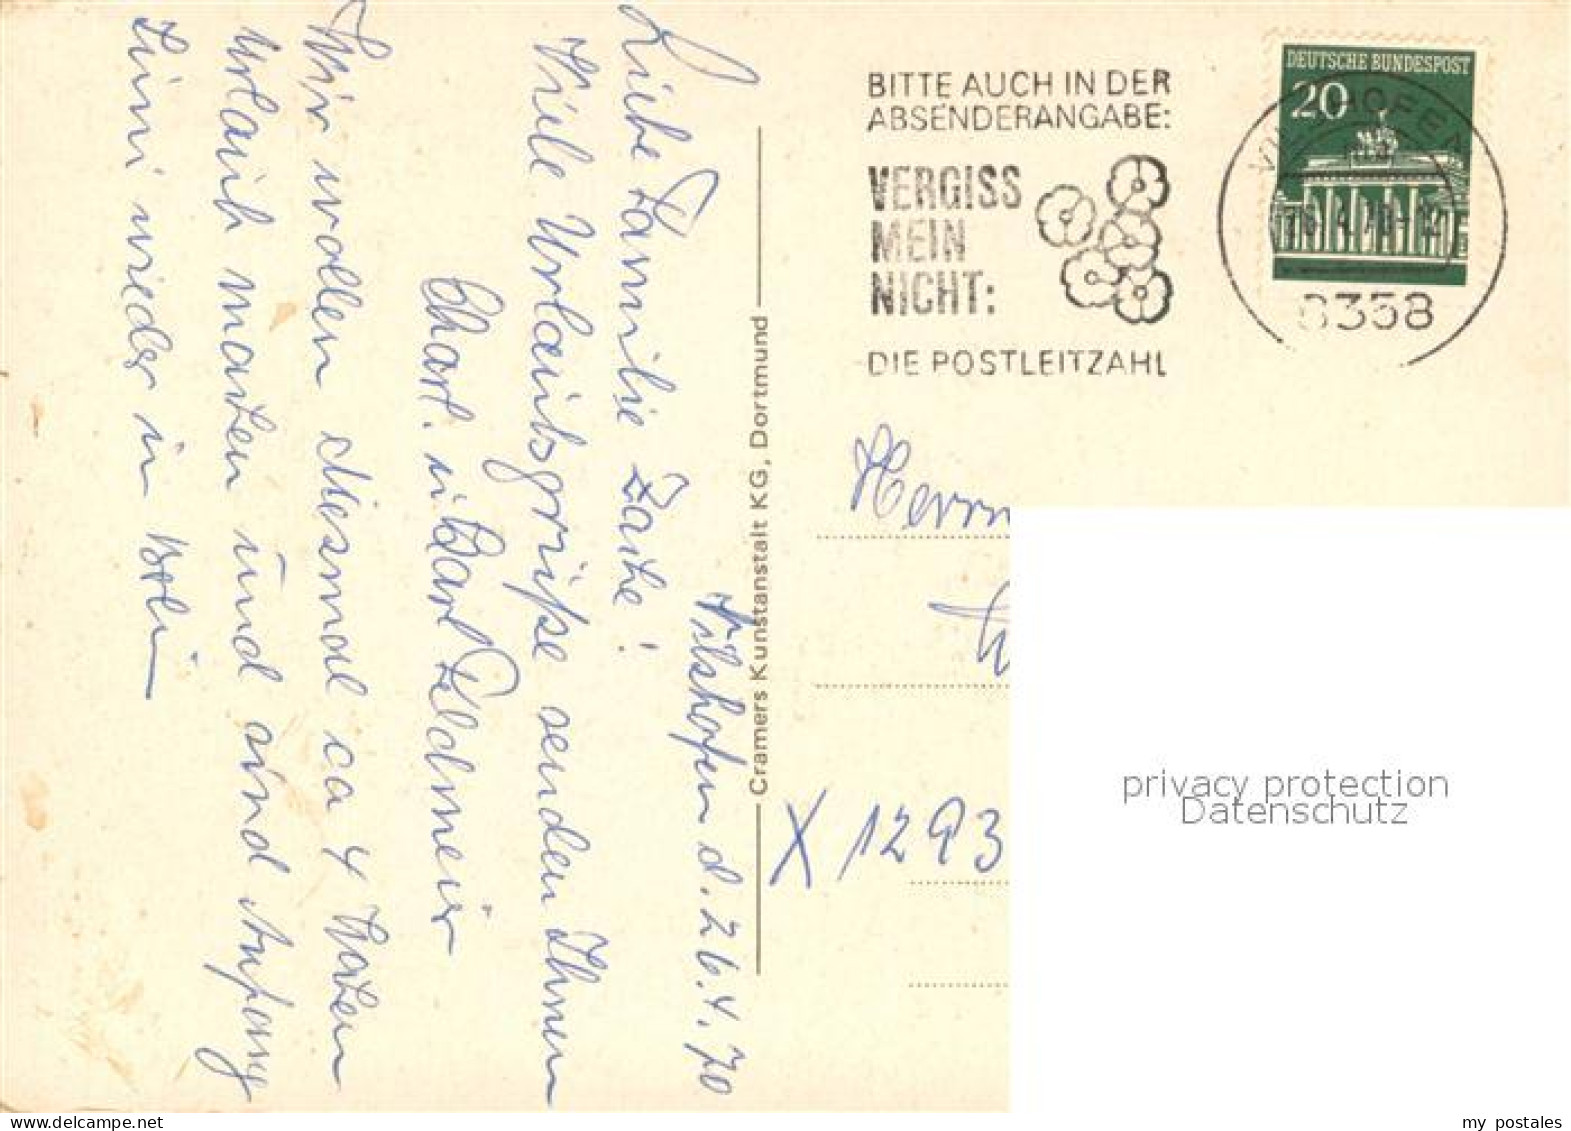 Vilshofen d. 26.4.70
Liebe Familie
Viele Urlaubsgrüße senden Ihnen
Charl. u. Karl Feldmeier
Wir wollen diesmal ca 4 Wochen
Urlaub machen und sind Anfang
Juni wieder in Berlin
Cramers Kunstanstalt KG, Dortmund
BITTE AUCH IN DER
ABSENDERANGABE:
VERGISS
MEIN
NICHT:
DIE POSTLEITZAHL
DEUTSCHE BUNDESPOST
20
VILSHOFEN
8358
Herrn
X 1293
privacy protection
Datenschutz
my postales